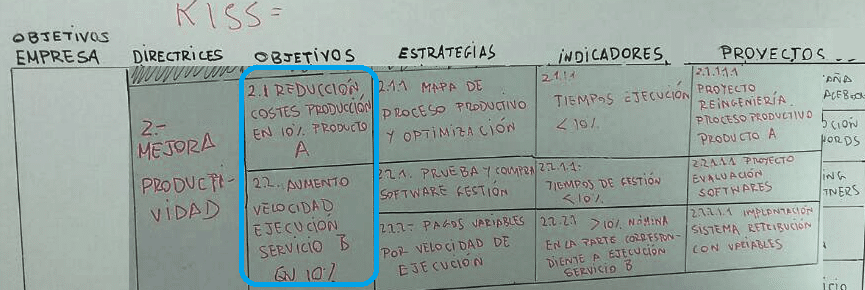 KISS=
OBJETIVOS
EMPRESA
DIRECTRICES
OBJETIVOS
ESTRATEGIAS
INDICADORES
PROYECTOS
2.-
MEJORA
PRODUCTI-
VIDAD
2.1 REDUCCIÓN
COSTES PRODUCCIÓN
EN 10% PRODUCTO
A
2.1.1 MAPA DE
PROCESO PRODUCTIVO
Y OPTIMIZACIÓN
2.1.1.1
TIEMPOS EJECUCIÓN
<10%
2.1.1.1.1
PROYECTO
REINGENIERÍA
PROCESO PRODUCTIVO
PRODUCTO A
2.2. AUMENTO
VELOCIDAD
EJECUCIÓN
SERVICIO B
EN 10%
2.2.1. PRUEBA Y COMPRA
SOFTWARE GESTIÓN
2.2.1.1-
TIEMPOS DE GESTIÓN
<10%
2.2.1.1.1 PROYECTO
EVALUACIÓN
SOFTWARES
2.2.2- PAGOS VARIABLES
POR VELOCIDAD DE
EJECUCIÓN
2.2.2.1 >10% NÓMINA
EN LA PARTE CORRESPON-
DIENTE A EJECUCIÓN
SERVICIO B
2.2.2.1.1 IMPLANTACIÓN
SISTEMA RETRIBUCIÓN
CON VARIABLES